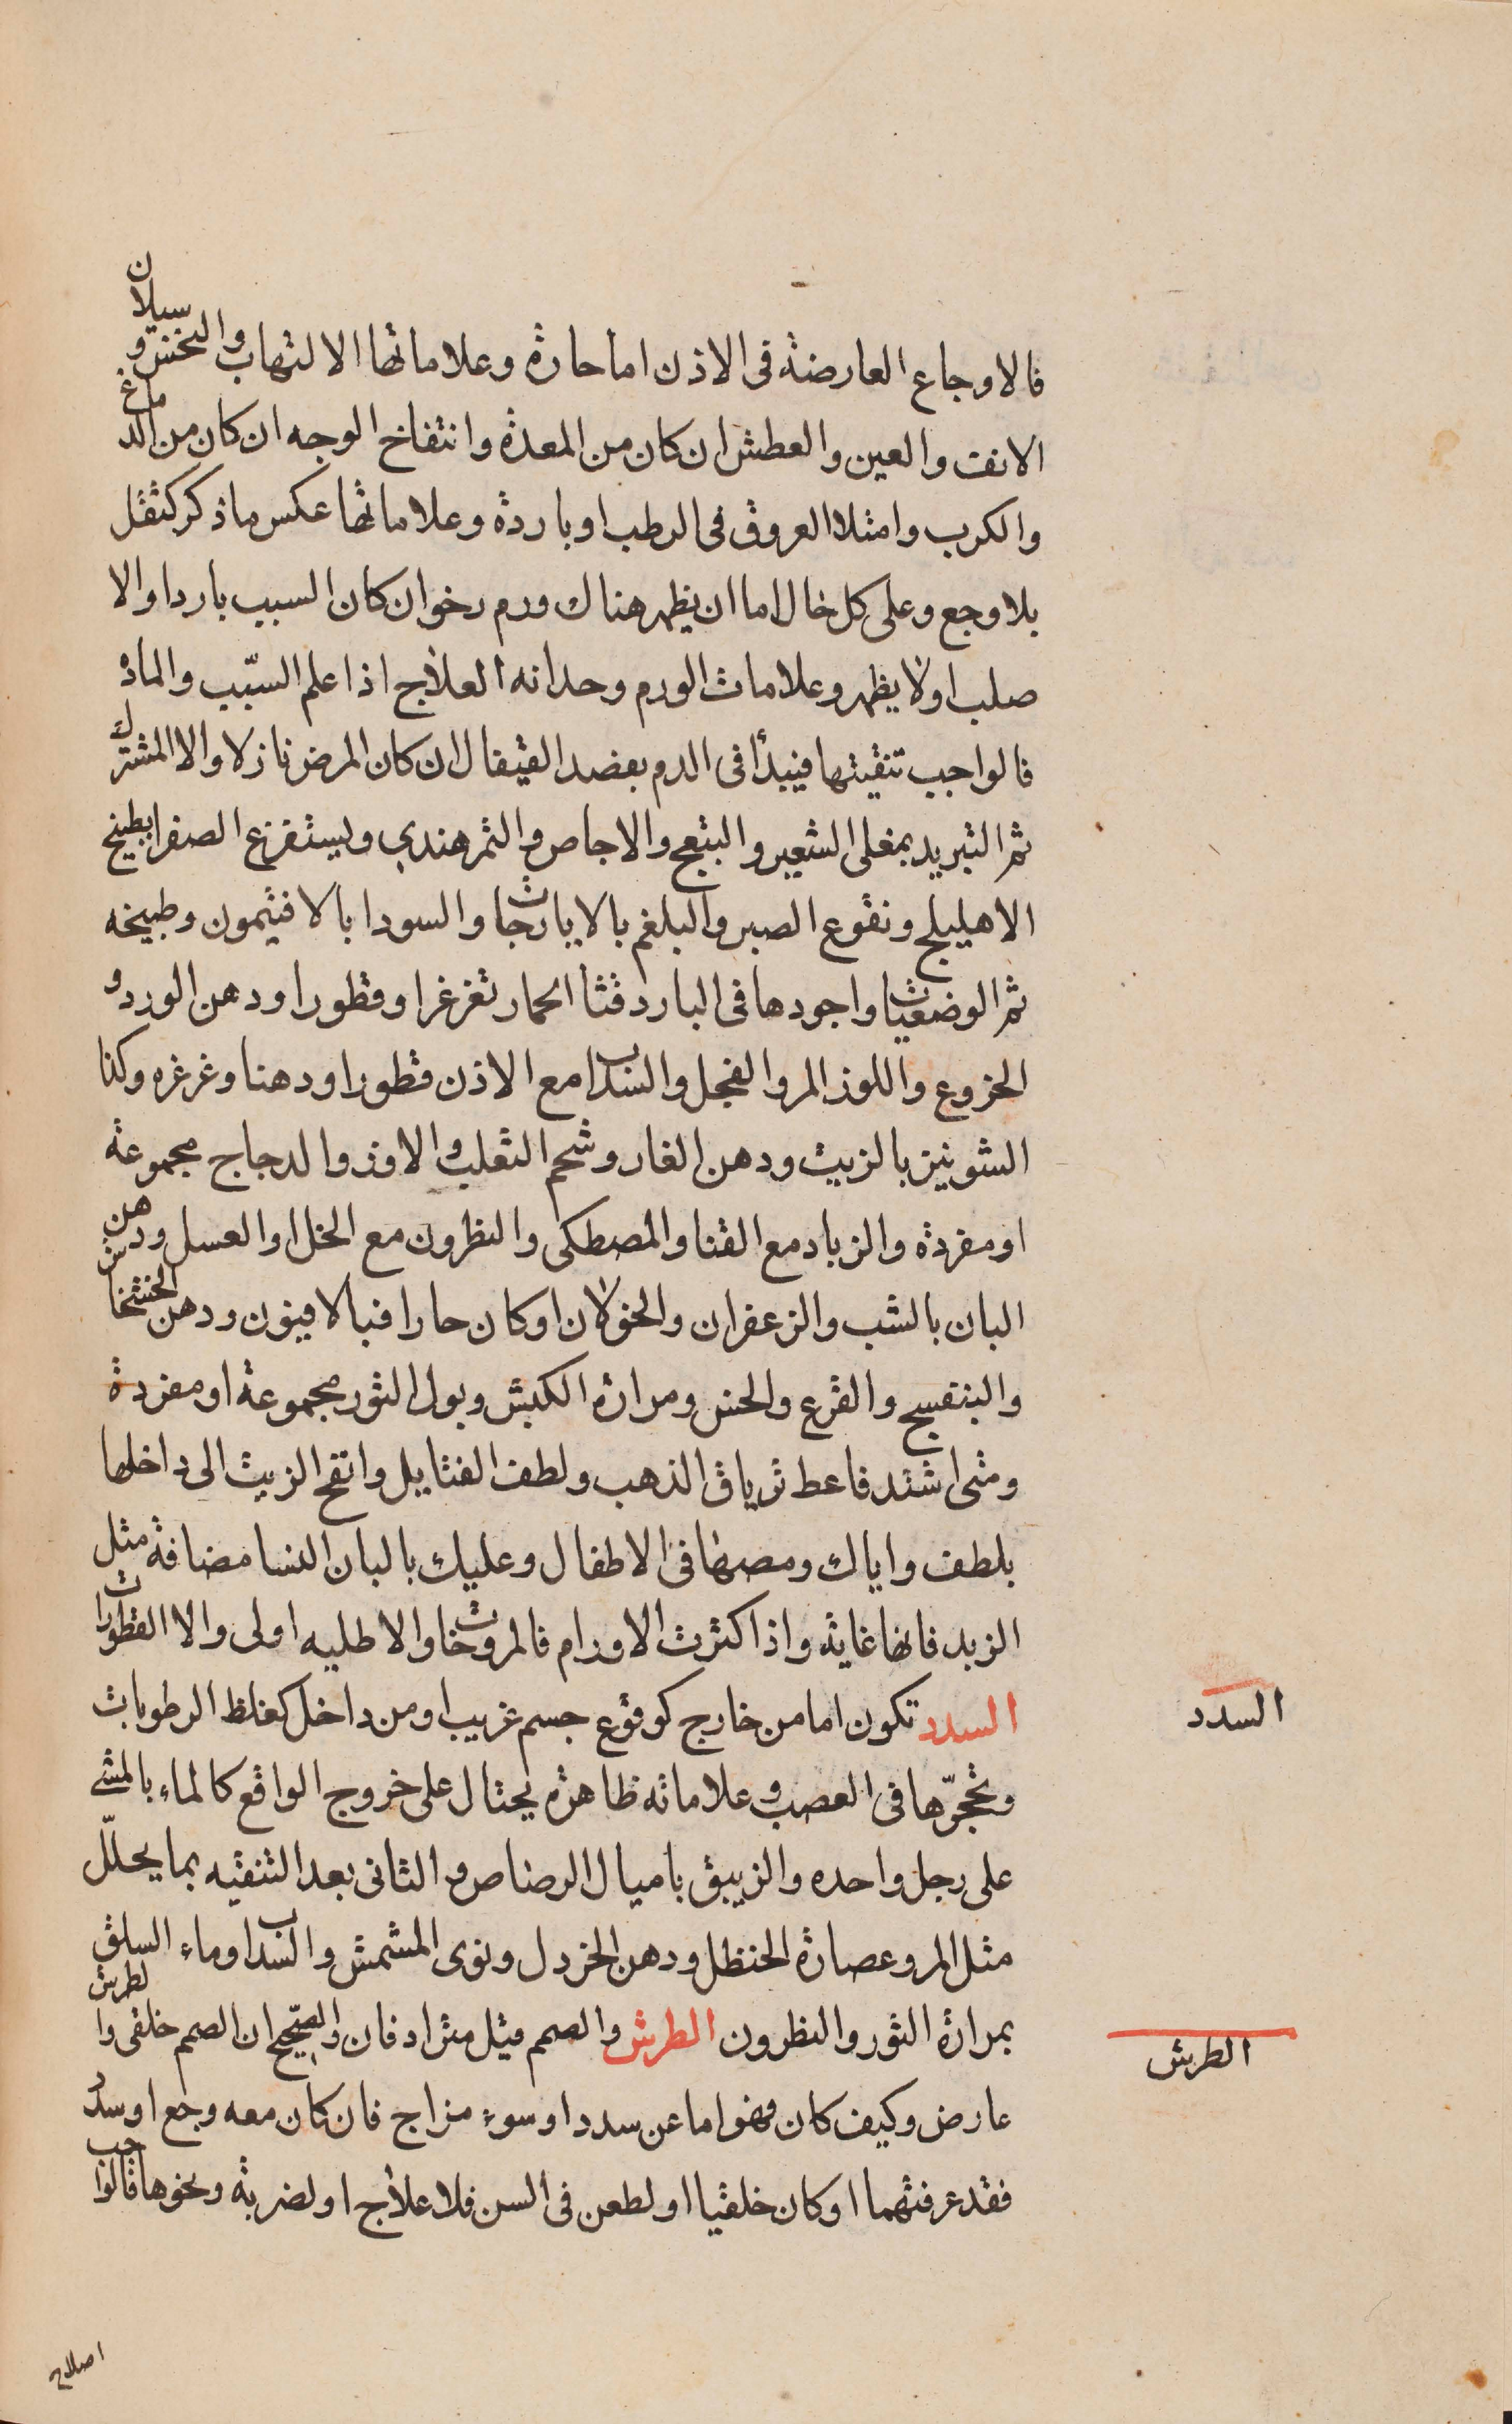 فالاوجاع العارضة فى الاذن اما حارة وعلاماتها الالتهاب والنخس وسيلان
الانف والعين والعطش ان كان من المعدة وانتفاخ الوجه ان كان من الدماغ
والكرب وامتلا العروق فى الرطب او باردة وعلاماتها عكس ما ذكر كثقل
بلا وجع وعلى كل خال اما ان يظهر هناك ورم رخو ان كان السبب باردا والا
صلب اولا يظهر وعلامات الورم وحدانه العلاج اذا علم السبّب والمادة
فالواجب تنقيتها فيبدأ فى الدم بفصد القيفال ان كان المرض نازلا والا المشترك
ثم التبريد بمغلى الشعير والاجاص والتمر هندي ويستفرغ الصفرا بطبيخ
الاهليلج ونقوع الصبر والبلغم بالايارجات والسودا بالافتيمون وطبيخه
ثم الوضعيات واجودها فى البارد قثا الحمار تغرغرا وقطورا ودهن الورد و
الخروع واللوز المر والفجل والسنداب مع الاذن قطورا ودهنا وغرغره وكذا
الشونيز بالزيت ودهن الغار وشحم الثعلب والاوز والدجاج مجموعة
او مفردة والزباد مع القنا والمصطكى والنطرون مع الخل او العسل ودهن
البان بالشب والزعفران والخولان او كان حارا فبالافيون ودهن الخشخاش
والبنفسج والقرع والخس ومرارة الكبش وبول الثور مجموعة او مفردة
ومتى اشتد فاعط ترياق الذهب ولطف الفتايل وانفخ الزيت الى داخلها
بلطف واياك ومصها فى الاطفال وعليك بالبان النسا مضافة مثل
الزبد فانها غاية واذا كثرت الاورام فالمروخات والاطليه اولى والا القطورات
السدد تكون اما من خارج كوقوع جسم غريب او من داخل كغلظ الرطوبات
وتحجّرها فى العصب وعلاماته ظاهرة يحتال على خروج الواقع كالماء بالمشي
على رجل واحده والزيبق باميال الرصاص والثانى بعد التنقيه بما يحلّل
مثل المر وعصارة الحنظل ودهن الخردل ونوى المشمش والسنداب وماء السلق
بمرارة الثور والنطرون الطرش والصم قيل مترادفان والصّحيح ان الصم خلقى والطرش
عارض وكيف كان فهو اما عن سدد او سوء مزاج فان كان معه وجع او سدد
فقد عرفتهما او كان خلقيا او لطعن فى السن فلا علاج او لضربة ونحوها فالواجب
السدد
الطرش
اصلاح